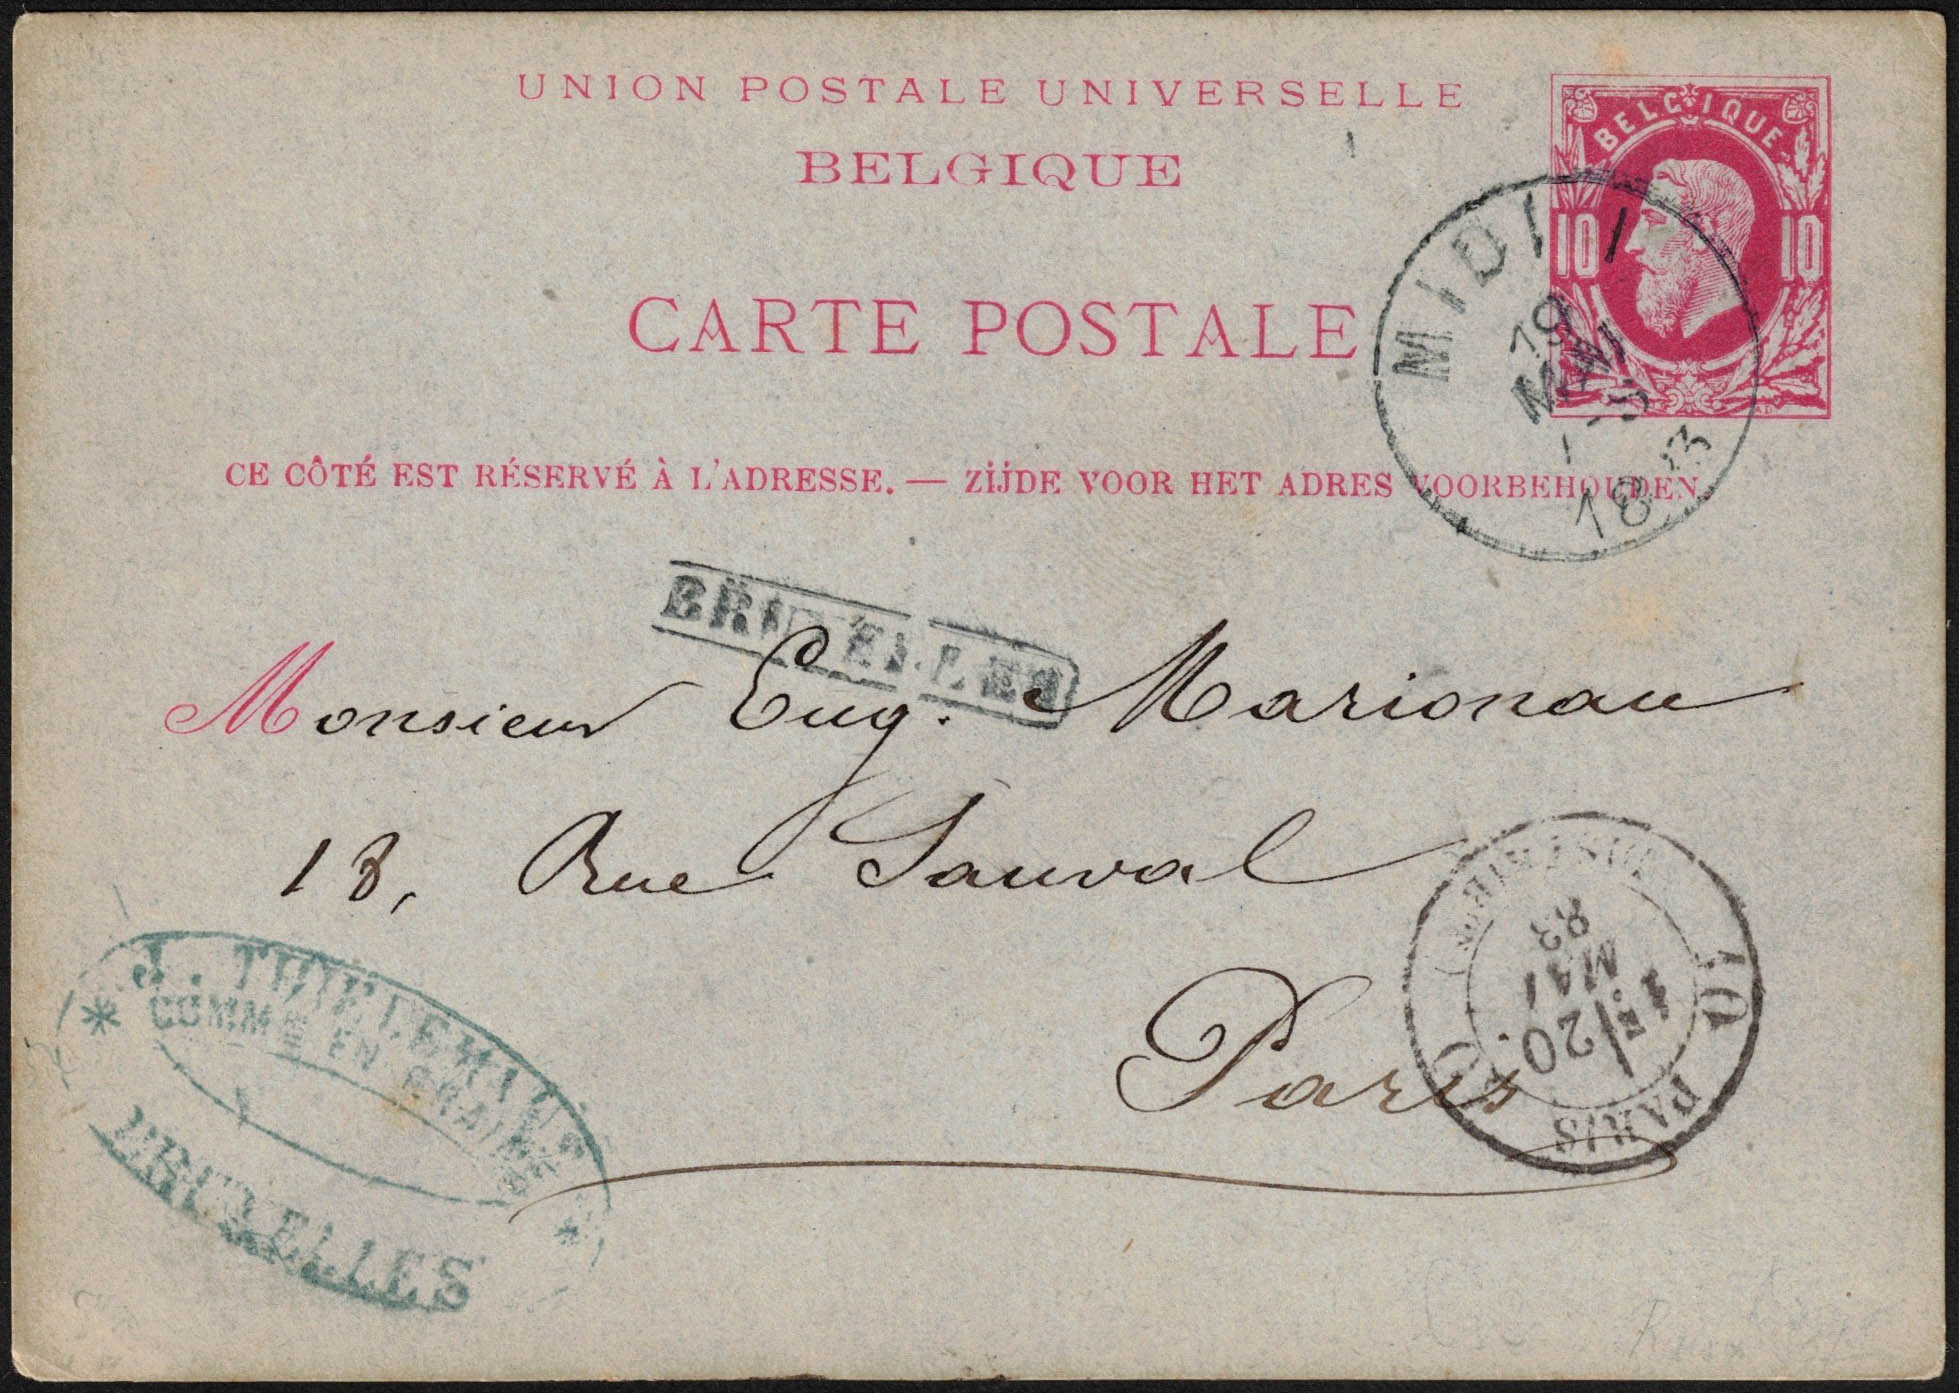 UNION POSTALE UNIVERSELLE
BELGIQUE
CARTE POSTALE
BELGIQUE
10 10
MIDI 1
19
MAI
-S
1883
CE CÔTÉ EST RÉSERVÉ À L'ADRESSE. — ZIJDE VOOR HET ADRES VOORBEHOUDEN.
BRUXELLES
Monsieur Eug. Marionau
18, Rue Sauval
Paris
PARIS
1E/
20
MAI
83
10 10
J. THIELEMANS
COMMRE EN GRAINS
BRUXELLES